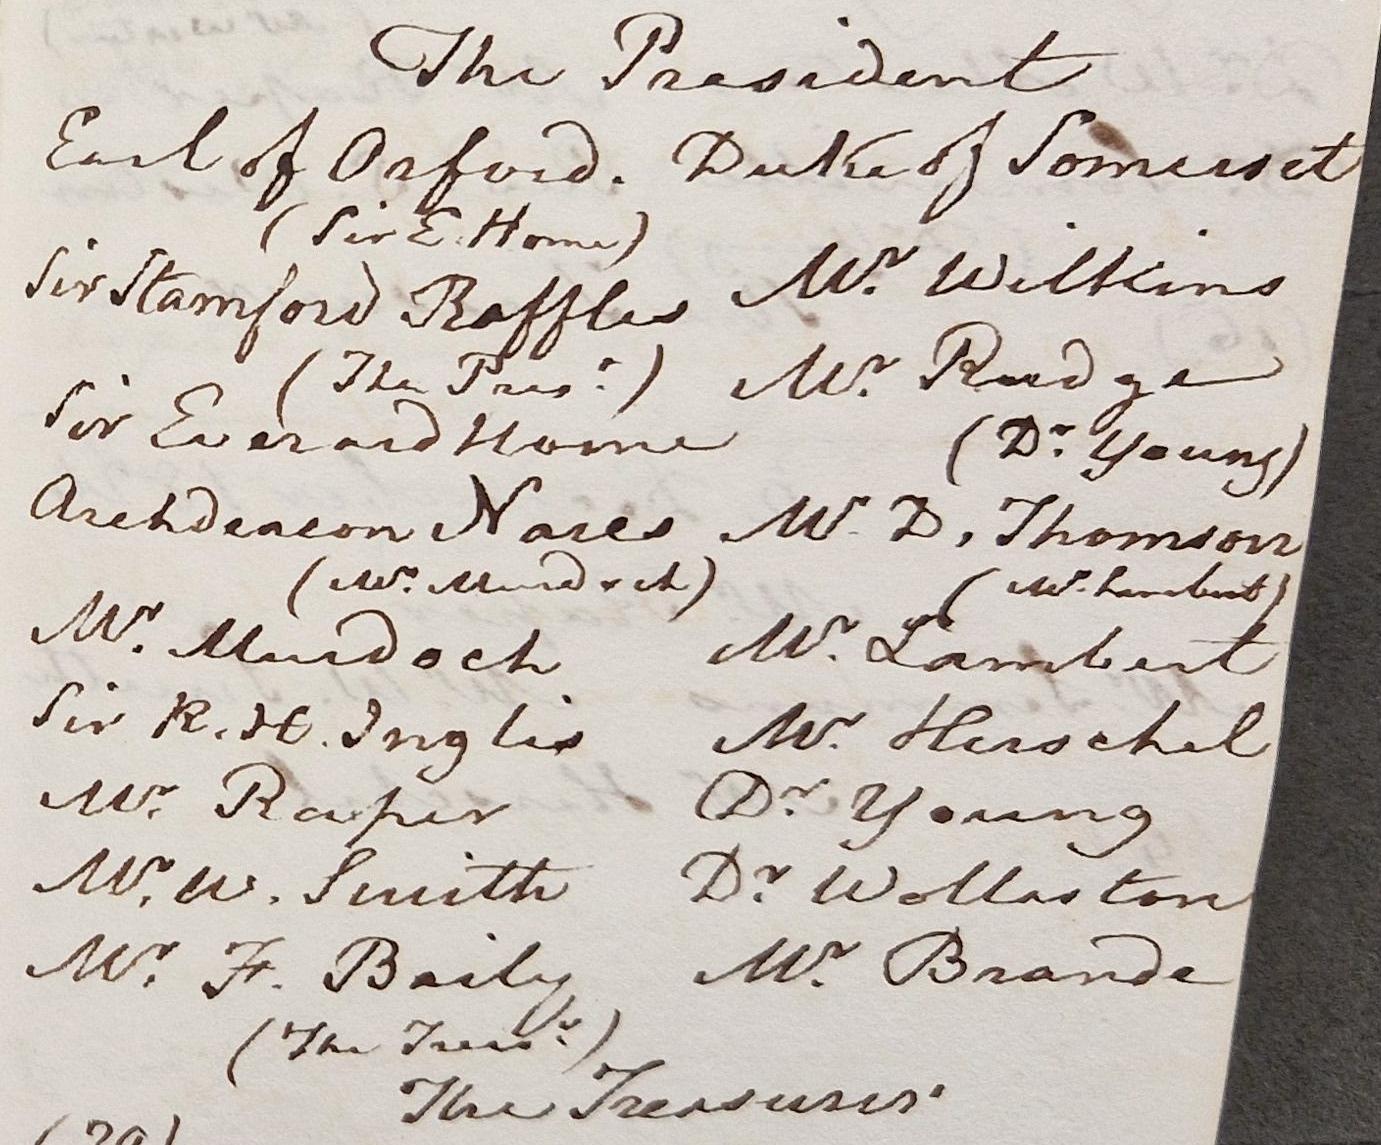 The President
Earl of Orford. Duke of Somerset
(Sir E. Home)
Sir Stamford Raffles Mr. Wilkins
(The Presr.) Mr. Rudge
Sir Everard Home (Dr. Young)
Archdeacon Nares Mr. D. Thomson
(Mr. Murdoch) (Mr. Lambert)
Mr. Murdoch Mr. Lambert
Sir R. H. Inglis Mr. Herschel
Mr. Raper Dr. Young
Mr. W. Smith Dr. Wollaston
Mr. F. Baily Mr. Brande
(The Treasr.)
The Treasurer
(29)